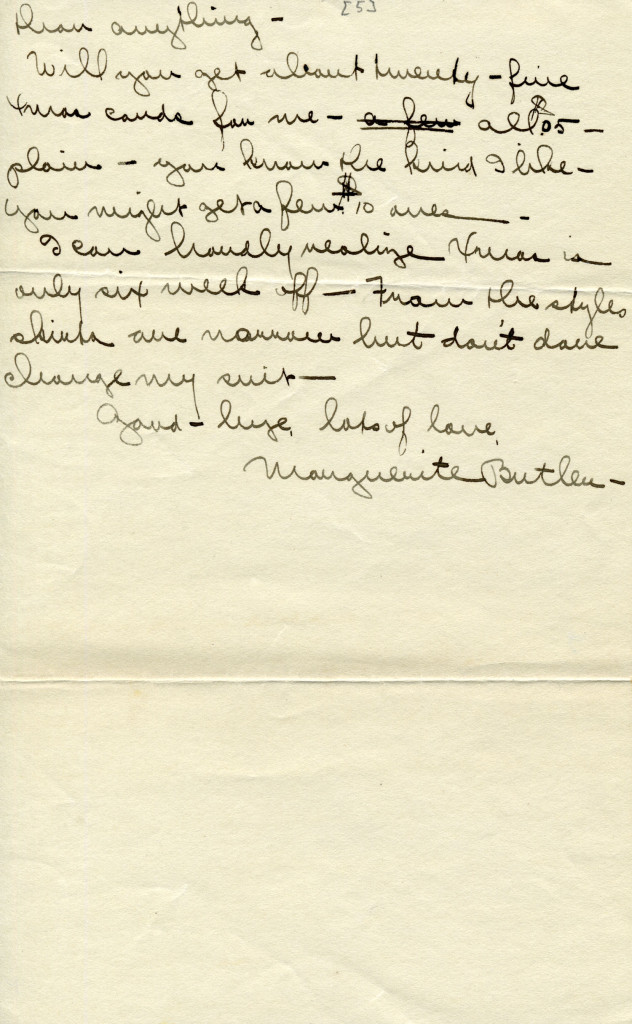 [5]
than anything -
Will you get about twenty - five
Xmas cards for me - a few all $.05 -
plain - you know the kind I like -
you might get a few $.10 ones -
I can hardly realize Xmas is
only six week off - From the styles
skirts are narrow but don't dare
change my suit -
Good - bye, lots of love,
Marguerite Butler -